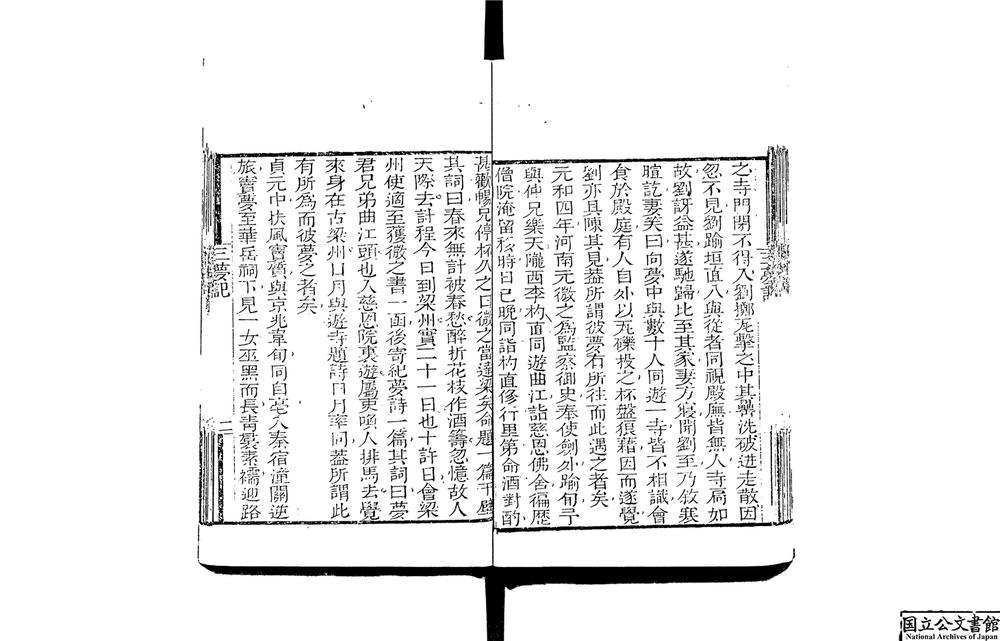 之寺門閉不得入劉擲瓦擊之中其罍洗破迸走散因
忽不見劉踰垣直入與從者同視殿廡皆無人寺扃如
故劉訝益甚遂馳歸比至其家妻方寢聞劉至乃敘寒
暄訖妻笑曰向夢中與數十人同遊一寺皆不相識會
食於殿庭有人自外以瓦礫投之杯盤狼藉因而遂覺
劉亦且陳其見葢所謂彼夢有所往而此遇之者矣
元和四年河南元微之為監察御史奉使劍外踰旬予
與仲兄樂天隴西李杓直同遊曲江詣慈恩佛舍徧歷
僧院淹留移時日已晚同詣杓直修行里第命酒對酌
甚歡暢兄停杯久之曰微之當達梁矣命題一篇于壁
其詞曰春來無計破春愁醉折花枝作酒籌忽憶故人
天際去計程今日到梁州實二十一日也十許日會梁
州使適至獲微之書一函後寄紀夢詩一篇其詞曰夢
君兄弟曲江頭也入慈恩院裏遊屬吏喚人排馬去覺
來身在古梁州日月與遊寺題詩日月率同葢所謂此
有所為而彼夢之者矣
貞元中扶風竇質與京兆韋旬同自亳入秦宿潼關逆
旅竇夢至華岳祠下見一女巫黑而長青裙素襦迎路
三夢記
二
三夢記
国立公文書館
National Archives of Japan